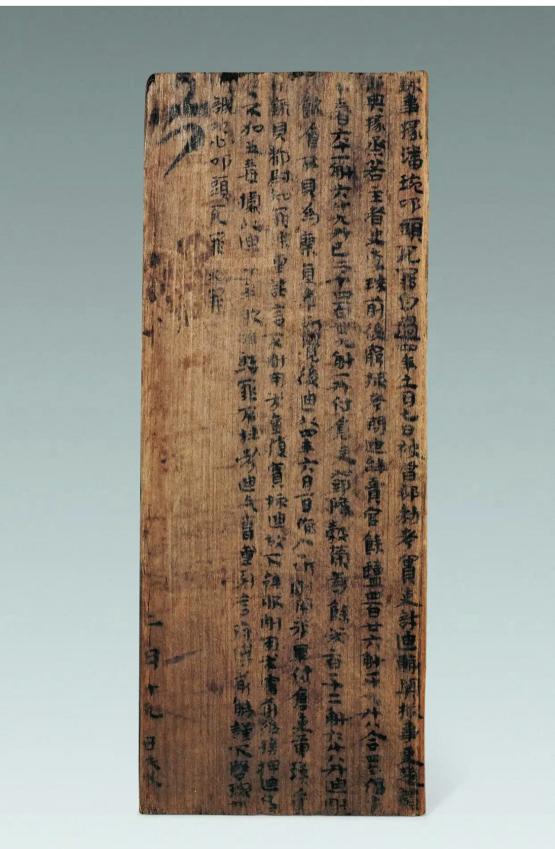 録事掾潘琬叩頭死罪白過四年十一月七日被督郵勑考實吏許迪輒與核事吏趙譚部
典掾烝若主者史李珠前後窮核考問迪辭賣官餘鹽四百廿六斛一斗九升八合四勺偪米
二千五百六十一斛六斗九升已二千四百卌九斛一升付倉吏鄧隆穀榮等餘米一百一十二斛六斗八升迪割用
飲食不見為廖直事所覺後迪以四年六月一日偷入所割用米畢付倉吏黃瑛受
前録見都尉知罪深重詣言不割用米重復實核迪故下辭服割用米審前後搒押迪凡
百不加五毒據以迪今年服辭結罪不枉考迪乞曹重列言府傅前解謹下啓琬
誠惶誠恐叩頭死罪死罪
若
二月十九日戊戌